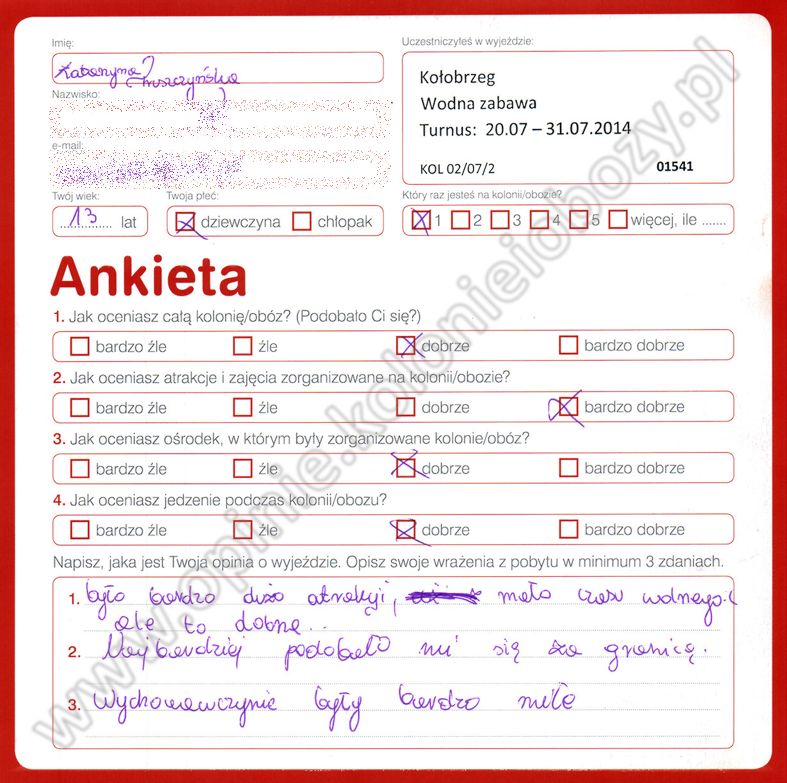 Imię:
Katarzyna
Nazwisko:
e-mail:
Twój wiek:
13 lat
Twoja płeć:
dziewczyna chłopak
Uczestniczyłeś w wyjeździe:
Kołobrzeg
Wodna zabawa
Turnus: 20.07 – 31.07.2014
KOL 02/07/2 01541
Który raz jesteś na kolonii/obozie?
1 2 3 4 5 więcej, ile .......
Ankieta
1. Jak oceniasz całą kolonię/obóz? (Podobało Ci się?)
bardzo źle źle dobrze bardzo dobrze
2. Jak oceniasz atrakcje i zajęcia zorganizowane na kolonii/obozie?
bardzo źle źle dobrze bardzo dobrze
3. Jak oceniasz ośrodek, w którym były zorganizowane kolonie/obóz?
bardzo źle źle dobrze bardzo dobrze
4. Jak oceniasz jedzenie podczas kolonii/obozu?
bardzo źle źle dobrze bardzo dobrze
Napisz, jaka jest Twoja opinia o wyjeździe. Opisz swoje wrażenia z pobytu w minimum 3 zdaniach.
1. było bardzo dużo atrakcji, mało czasu wolnego:(
ale to dobrze..
2. Najbardziej podobało mi się za granicą.
3. Wychowawczynie były bardzo miłe
www.opinie.kolonieiobozy.pl